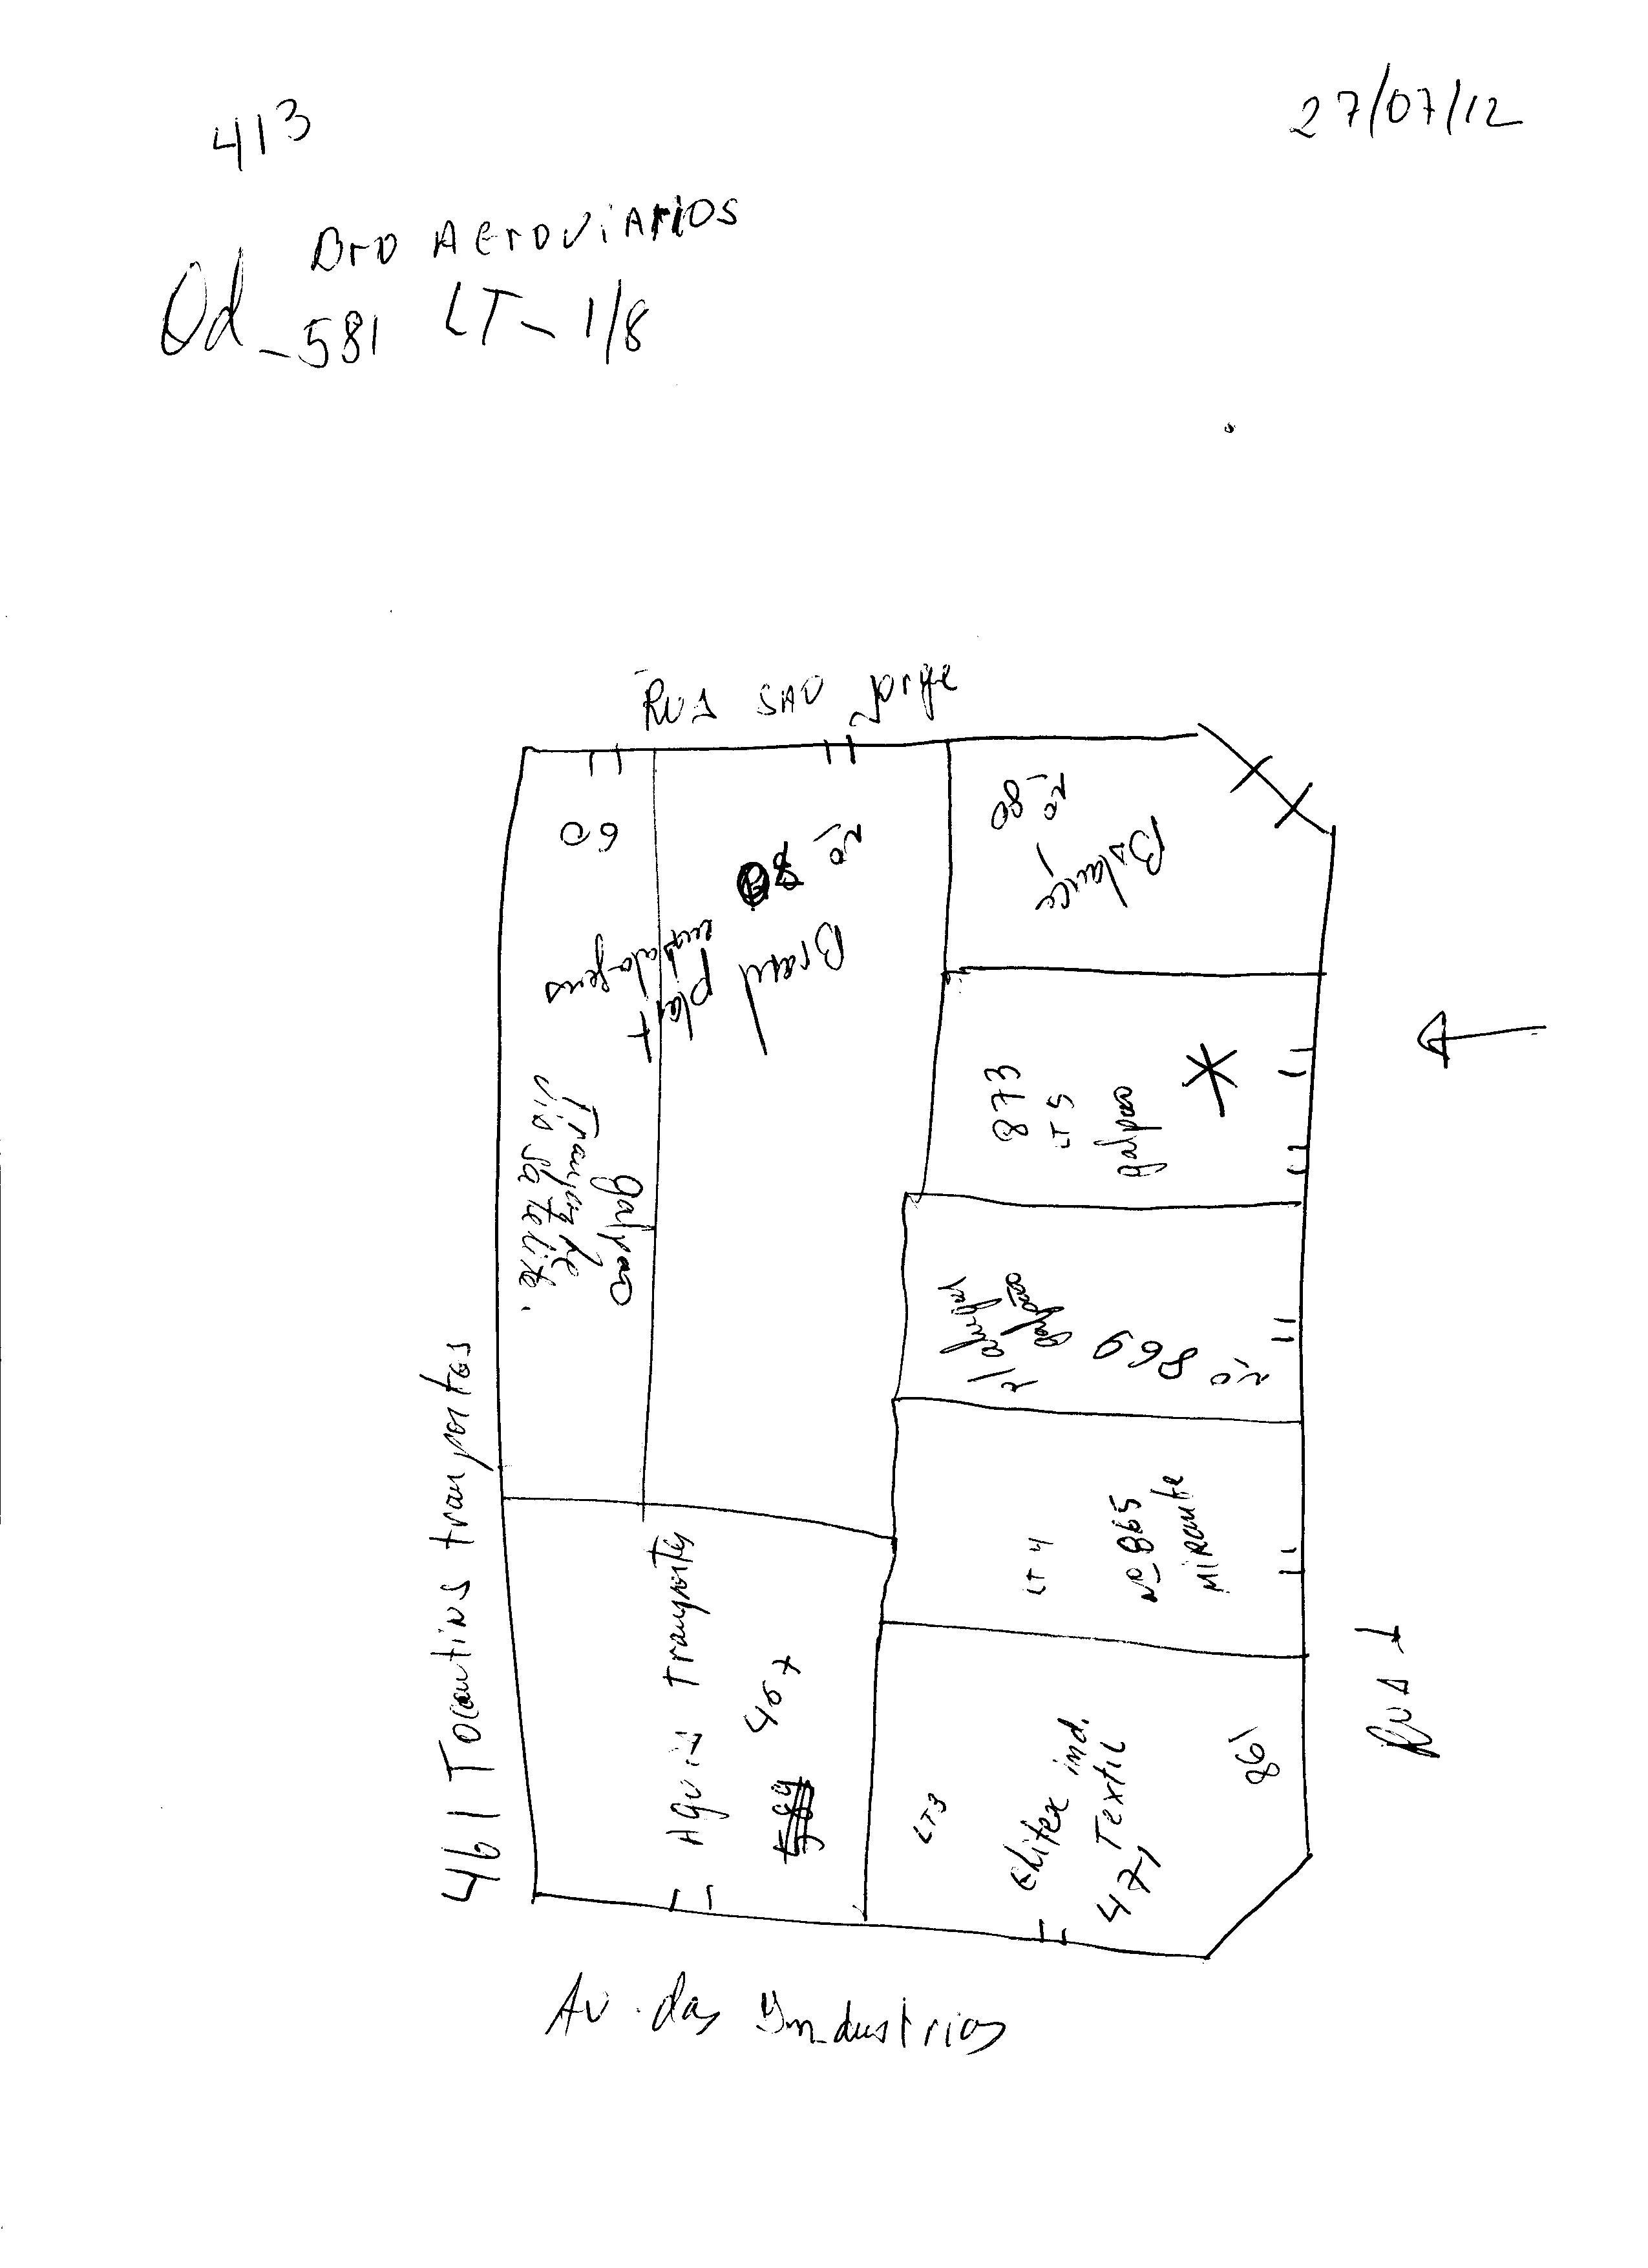 413
27/07/12
Bro AEroviArios
Qd - 581 LT - 1/8
RUA SAO Jorge
60
nº
Brasil
plast
galpao
via satelite.
nº 80
Balança
873
LT 5
galpao
p/ alugar
galpão
869
nº
LT 4
Nº 865
MIRANTE
461 Tocantins transportes
Aguia Transportes
467
LT3
Chitex ind.
Textil
471
861
RUA 1
Av. das Industrias